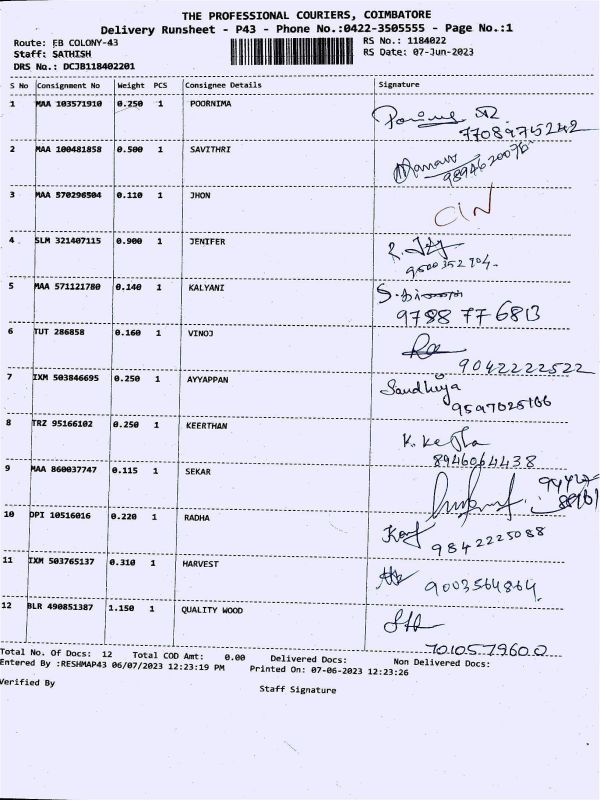 THE PROFESSIONAL COURIERS, COIMBATORE
Delivery Runsheet - P43 - Phone No.:0422-3505555 - Page No.:1
Route: EB COLONY-43 RS No.: 1184022
Staff: SATHISH RS Date: 07-Jun-2023
DRS No.: DCJB118402201
S No Consignment No Weight PCS Consignee Details Signature
1 MAA 103571910 0.250 1 POORNIMA
7708975242
2 MAA 100481858 0.500 1 SAVITHRI
9894620076
3 MAA 570296504 0.110 1 JHON
4 SLM 321407115 0.900 1 JENIFER
9500352704.
5 MAA 571121780 0.140 1 KALYANI
9788 77 6813
6 TUT 286858 0.160 1 VINOJ
9042222522
7 IXM 503846695 0.250 1 AYYAPPAN Sandhiya
8 TRZ 95166102 0.250 1 KEERTHAN
8946064438
9 MAA 860037747 0.115 1 SEKAR
10 DPI 10516016 0.220 1 RADHA
9842225088
11 IXM 503765137 0.310 1 HARVEST 9003564864.
12 BLR 490851387 1.150 1 QUALITY WOOD
7010579600
Total No. Of Docs: 12 Total COD Amt: 0.00 Delivered Docs: Non Delivered Docs:
Entered By :RESHMAP43 06/07/2023 12:23:19 PM Printed On: 07-06-2023 12:23:26
Verified By Staff Signature